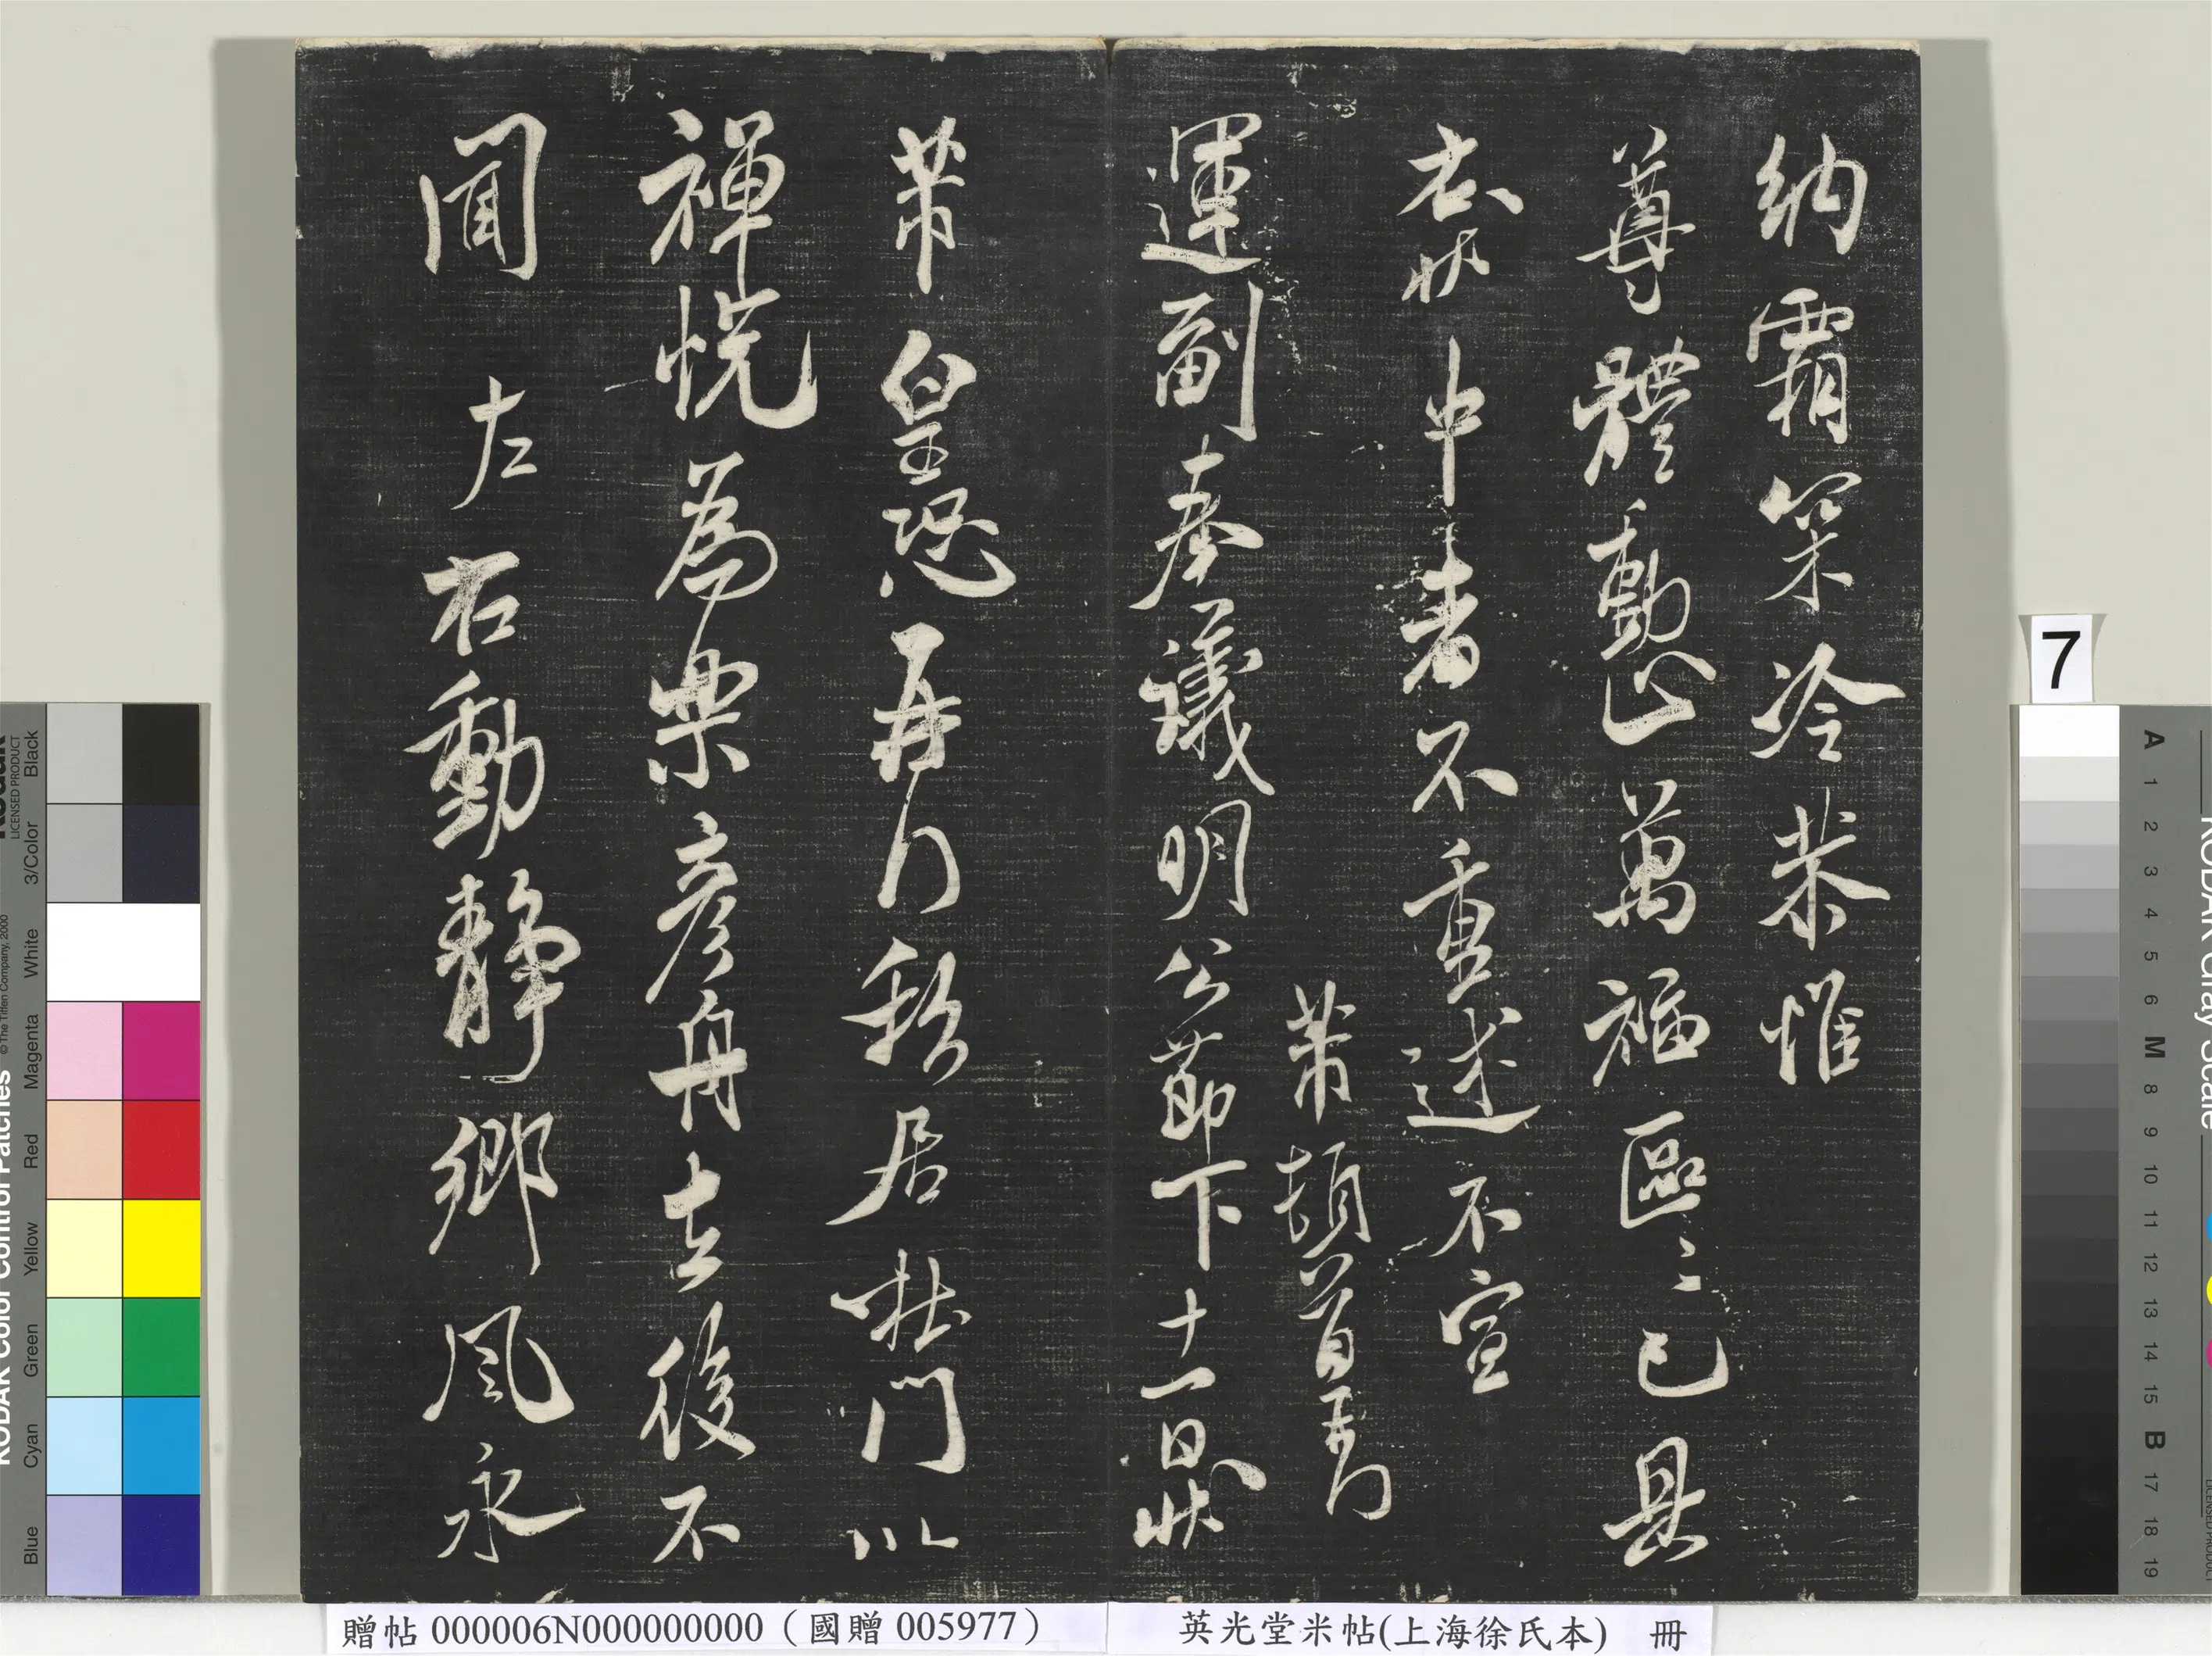 納霜寀冷恭惟
尊體動止萬福區〻已具
右狀中者不重述不宣
芾頓首再行
運副奉議明公節下十一日狀
芾皇恐再行秋居壯門以
禪悅為樂彥舟去後不
聞左右動靜鄉風永
7
贈帖 000006N000000000 (國贈 005977)
英光堂米帖(上海徐氏本) 冊
KODAK Color Control Patches
© The Tiffen Company, 2000
Kodak
LICENSED PRODUCT
Black
3/Color
White
Magenta
Red
Yellow
Green
Cyan
Blue
KODAK Gray Scale
A 1 2 3 4 5 6 M 8 9 10 11 12 13 14 15 B 17 18 19